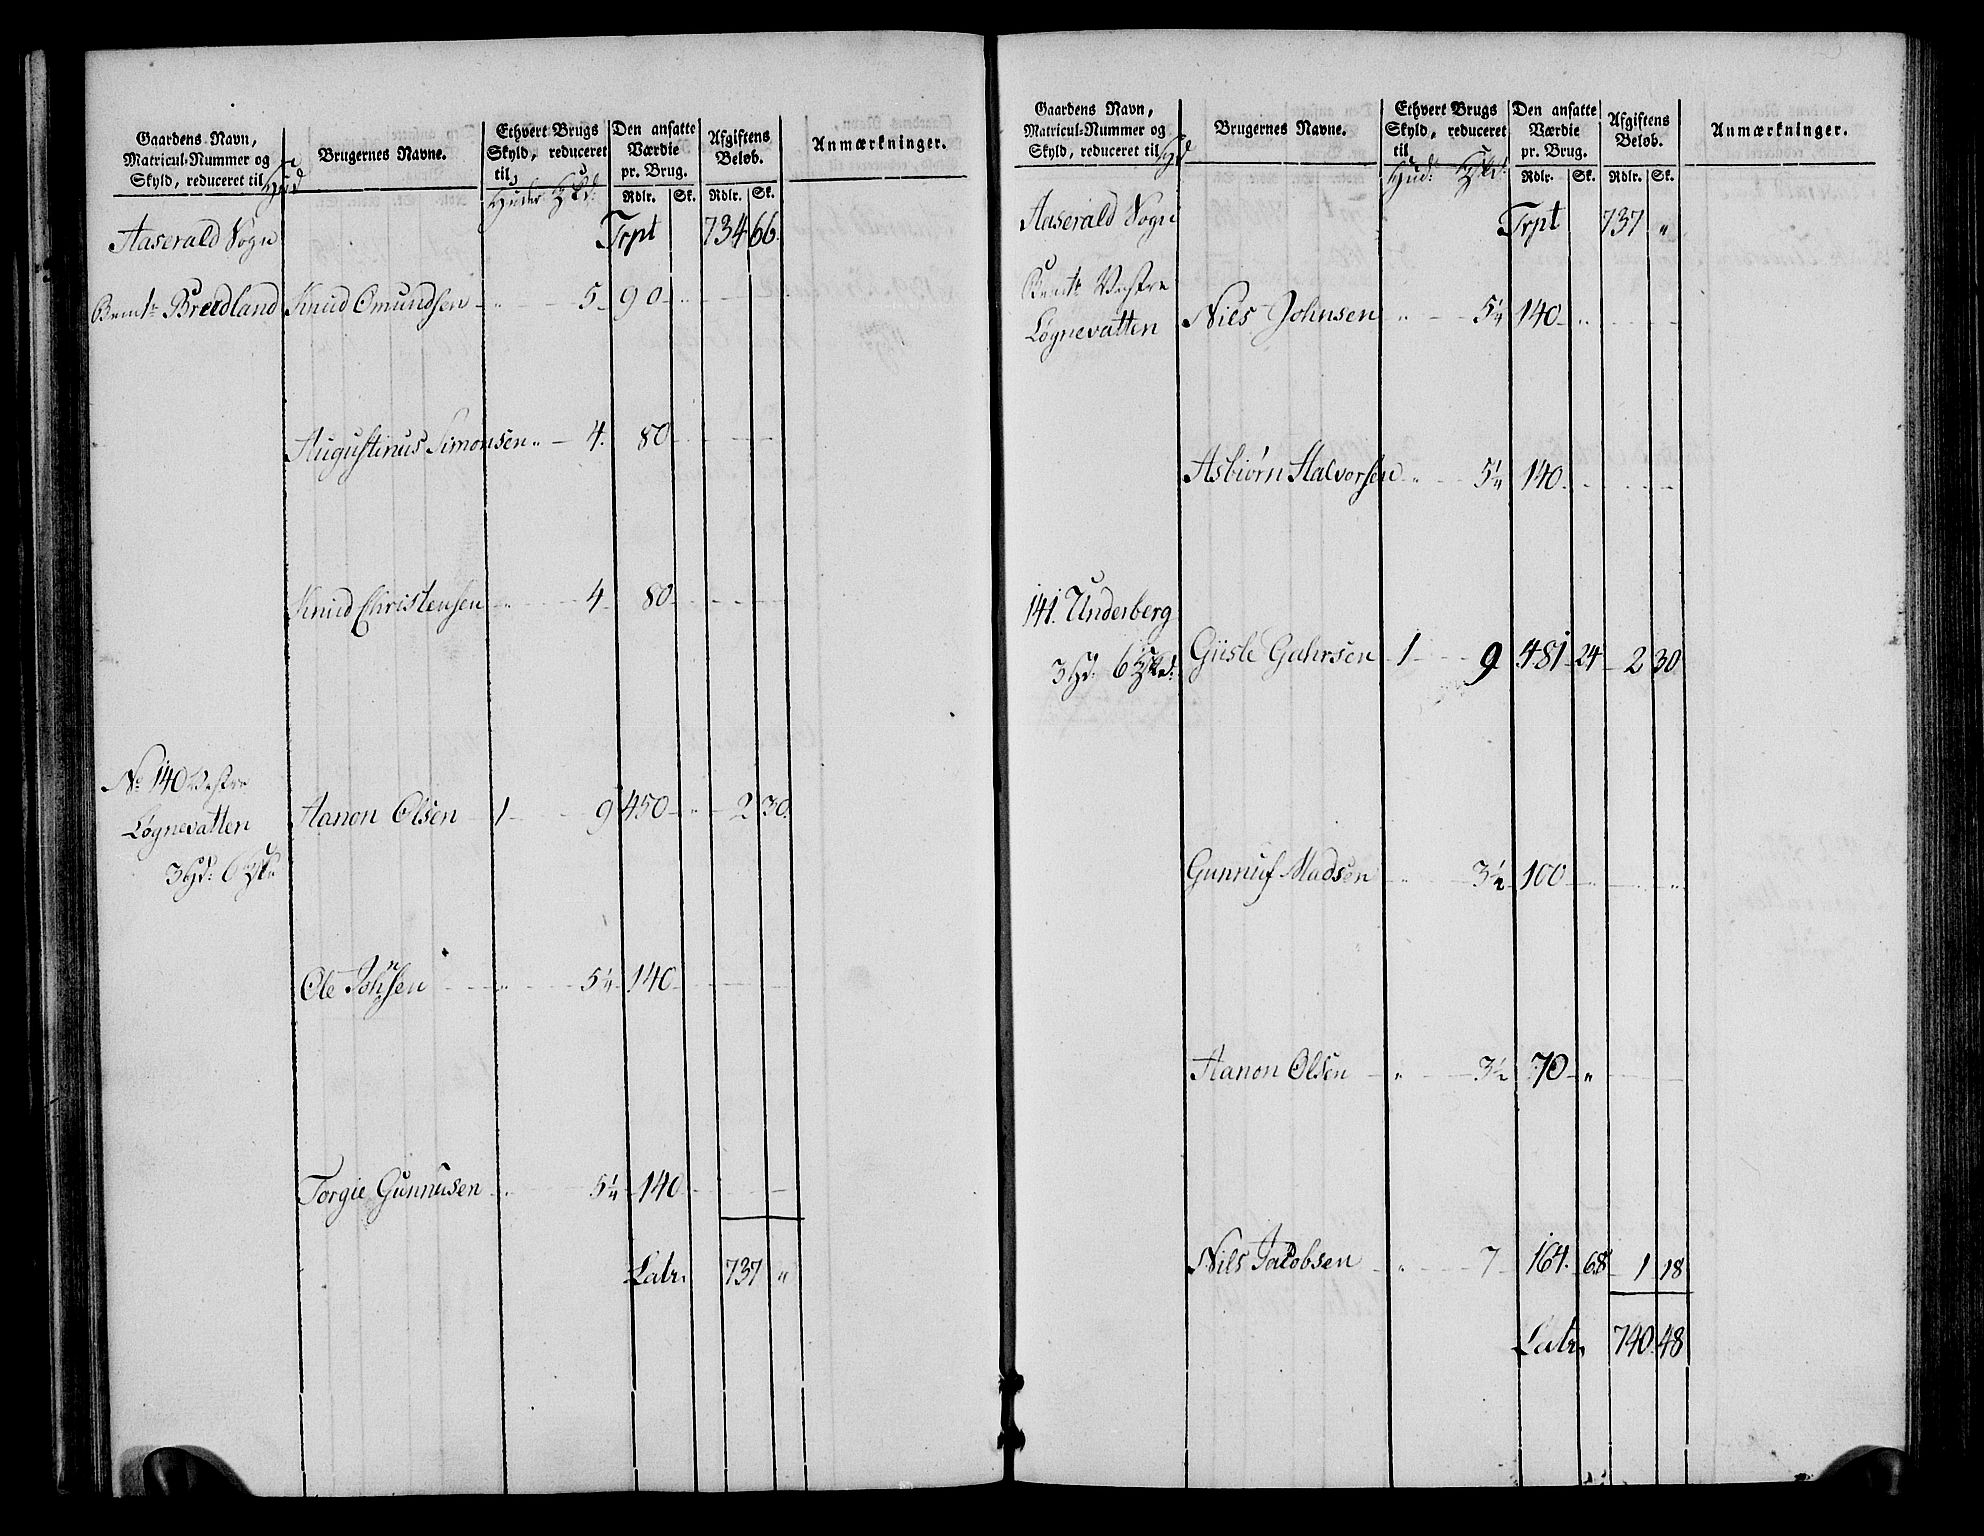 Gaardens Navn, Matricul-Nummer og Skyld, reduceret til Hud | Brugernes Navne. | Ethvert Brugs Skyld, reduceret til Huder Skd: | Den ansatte Værdie pr. Brug. Rdlr. Sk. | Afgiftens Beløb. Rdlr. Sk. | Anmærkninger.
Aaserald Sogn Trpt 734 66.
Bemte Breedland Knud Omundsen 5 90
Augustinus Simonsen 4. 80
Knud Christensen 4 80
No 140 Vestre
Løgnevatten Aanon Olsen 1 9 450 2 30.
3 Hd: 6 Skd
Ole Johnsen 5¼ 140
Torgie Gunnusen 5¼ 140
Latr. 737 "
Gaardens Navn, Matricul-Nummer og Skyld, reduceret til Hud | Brugernes Navne. | Ethvert Brugs Skyld, reduceret til Hud: Skd: | Den ansatte Værdie pr. Brug. Rdlr. Sk. | Afgiftens Beløb. Rdlr. Sk. | Anmærkninger.
Aaserald Sogn Trpt 737 "
Bemte Vestre
Løgnevatten Niels Johnsen " 5¼ 140 "
Asbiørn Halvorsen " 5¼ 140
141. Underberg
3 Hd: 6 Skd: Giisle Gahrsen 1 9 481 24 2 30
Gunnuf Madsen 3½ 100 "
Aanon Olsen " 3½ 70 "
Nils Jacobsen " 7 164. 68 1 18
Latr. 740 48